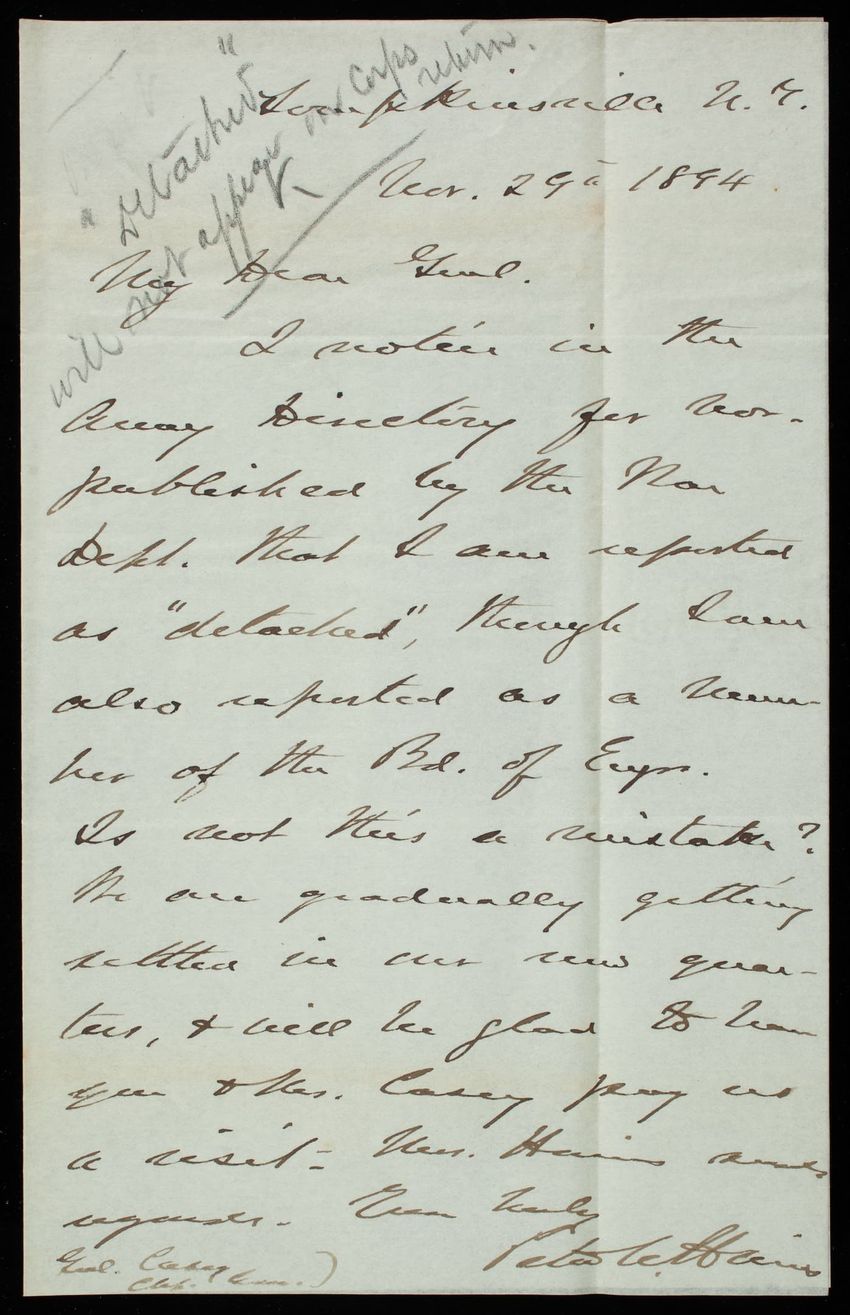 "Detached"
will not appear on Corps
return.
Tompkinsville N. Y.
Nov. 29th 1894
My Dear Genl.
I notice in the
Army Directory for Nov.
published by the War
Dept. that I am reported
as "detached", though I am
also reported as a mem-
ber of the Bd. of Engrs.
Is not this a mistake?
We are gradually getting
settled in our new quar-
ters, & will be glad to have
you & Mrs. Casey pay us
a visit - Mrs. Hains sends
regards. Ever truly
Peter C. Hains
Genl. Casey